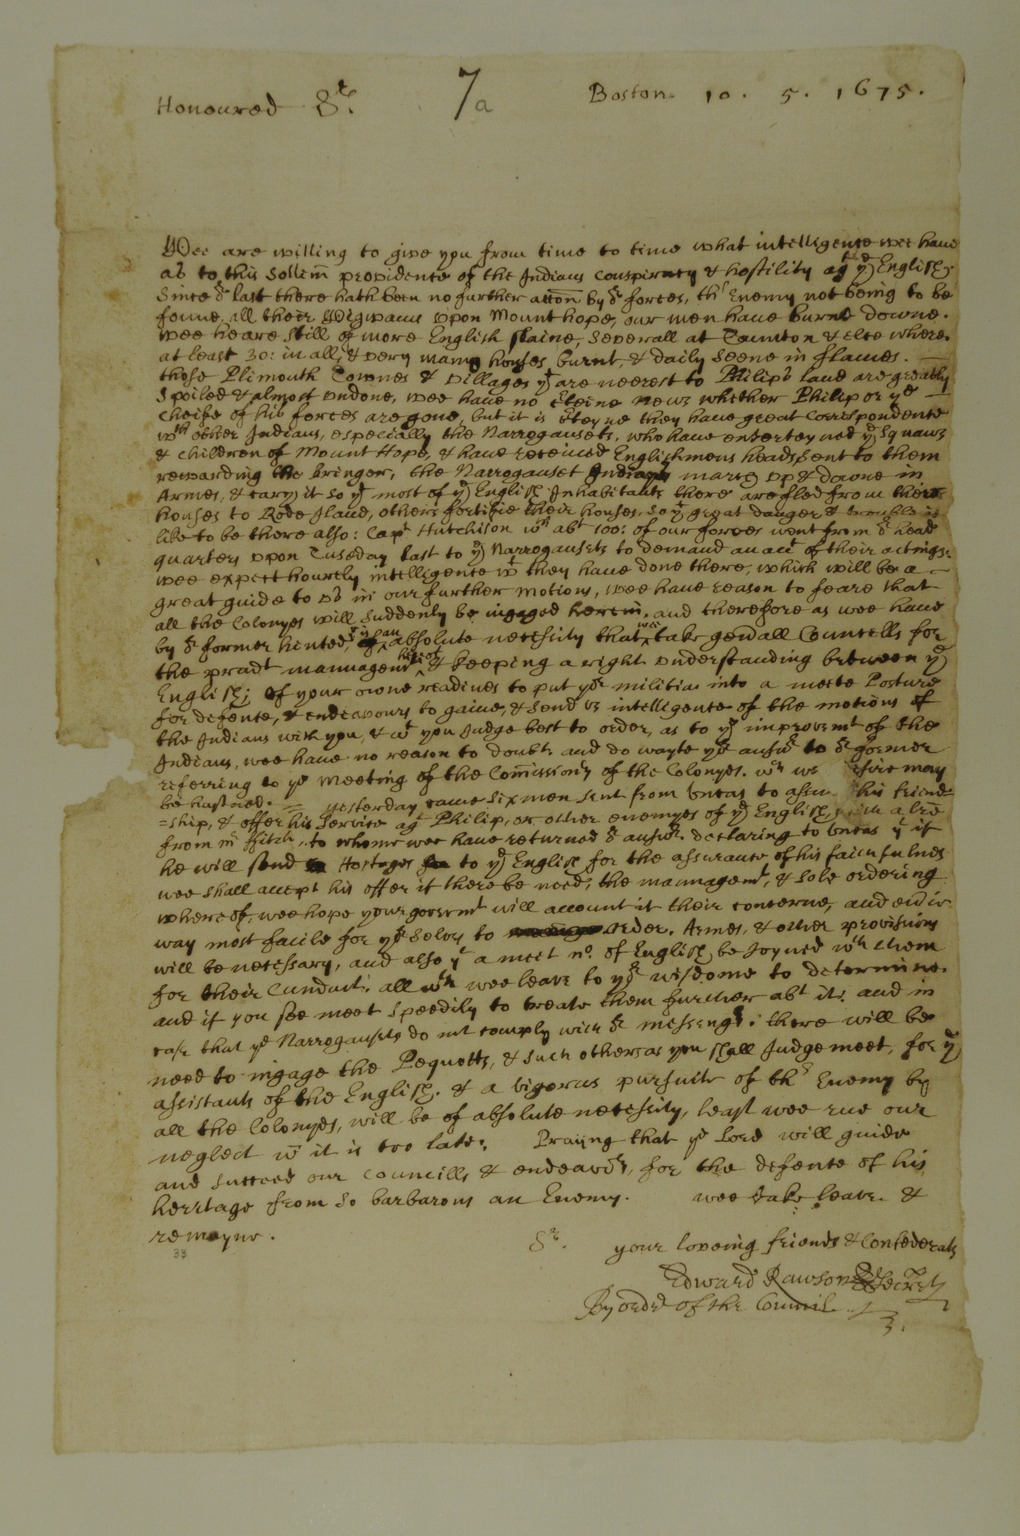 Honoured Sr. 7a Boston. 10. 5. 1675.
Wee are willing to give you from time to time what intelligence wee have
as to this Sollem̄ providence of the Indians conspiracy & hostility agt ye English.
Since or last there hath been no further action by or forces, the Enemy not being to be
found, all their Wigwams upon Mount hope, our men have burnt downe.
wee heare still of more English slaine, severall at Taunton & else where,
at least 30: in all, & very many houses burnt, & daily seene in flames.
those Plimouth Townes & villages yt are neerest to Philips land are greatly
Spoiled & almost undone, wee have no cleere news whether Philip or ye
cheife of his forces are gone, but it is they have great Correspondence
wth other Indians, especially the Narrogansets, who have entertyned ye Squaws
& children of Mount Hope, & have received Englishmens heads, sent to them
rewarding the bringer, the Narroganset Indians march up & downe in
Armes, & cary it so yt most of ye English Inhabitants there are fled from there
houses to Rode Iland, others fortifie their houses, so yt great danger & trouble is
like to be there also: Capt Hutchison wth abt 100: of our forces went from or head
quarters upon Tuseday last to ye Narrogansets to demand an acct of their actings:
wee expect hourely intelligence wt they have done there, which will be a
great guide to us in our further motions, wee have reason to feare that
all the Colonyes will suddenly be ingaged herein, and therefore as wee have
by or former hinted, tis an absolute necessity that wee take genall Councells for
the prudt mannagemt hereof & keeping a right understanding between ye
English; Of your owne readines to put yor militia into a meete Posture
for defence, & endeavours to gaine, & send us intelligence of the motions of
the Indians with you, & wt you Judge best to order, as to ye improvemt of the
Indians, wee have no reason to doubt and do wayte yor answr to or former
referring to ye Meeting of the Com̄issionrs of the Colonyes. wch we desire may
be hastned. = yesterday came Six men sent from Uncas to his friend
=ship, & offer his Service agt Philip, or other enemyes of ye English, with a lre
from mr Fitch, to whome wee have returned or answr. declaring to Uncas yt if
he will send Hostages to ye English for the assurance of his faithfulnes
wee shall accept his offer if there be need, the mannagemt, & sole ordering
whereof, wee hope your govermt will account it their concerne, and
way most facile for yor Selves to order. Armes, & other provisions
will be necessary, and also yt a meet no. of English be Joyned wth them
for their Conduct. all wch wee leave to yor wisdome to determine.
and if you see meet speedily to treate them further abt it. and in
case that ye Narrogansets do not comply with or messengrs: there will be
need to ingage the Pequotts, & such others as you shall Judge meet, for ye
assistants of the English. & a vigorus pursuite of the Enemy by
all the Colonyes, will be of absolute necessity, least wee rue our
neglect wn it is too late: Praying that ye Lord will guide
and succeed our Councills & endeavrs, for the defence of his
heritage from so barbarous an Enemy. wee take leave. &
remayne.
33
Sr. your loveing friends & Confederats
Edward Rawson Secrety
By ordr of the Council